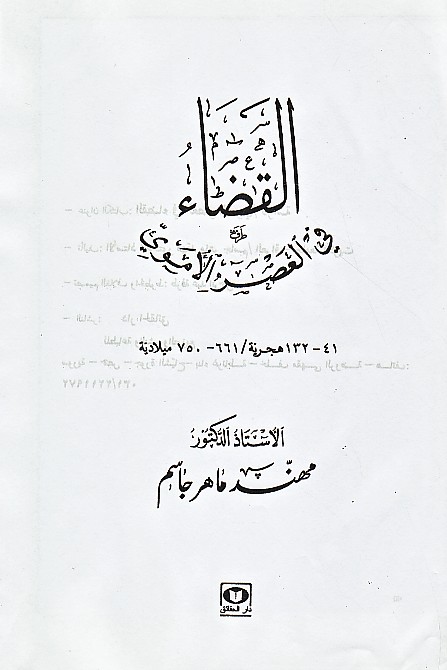 القضاء
في العصر الأموي
٤١-١٣٢ هجرية/٦٦١-٧٥٠ ميلادية
الأستاذ الدكتور
مهند ماهر جاسم
دار الحقائق